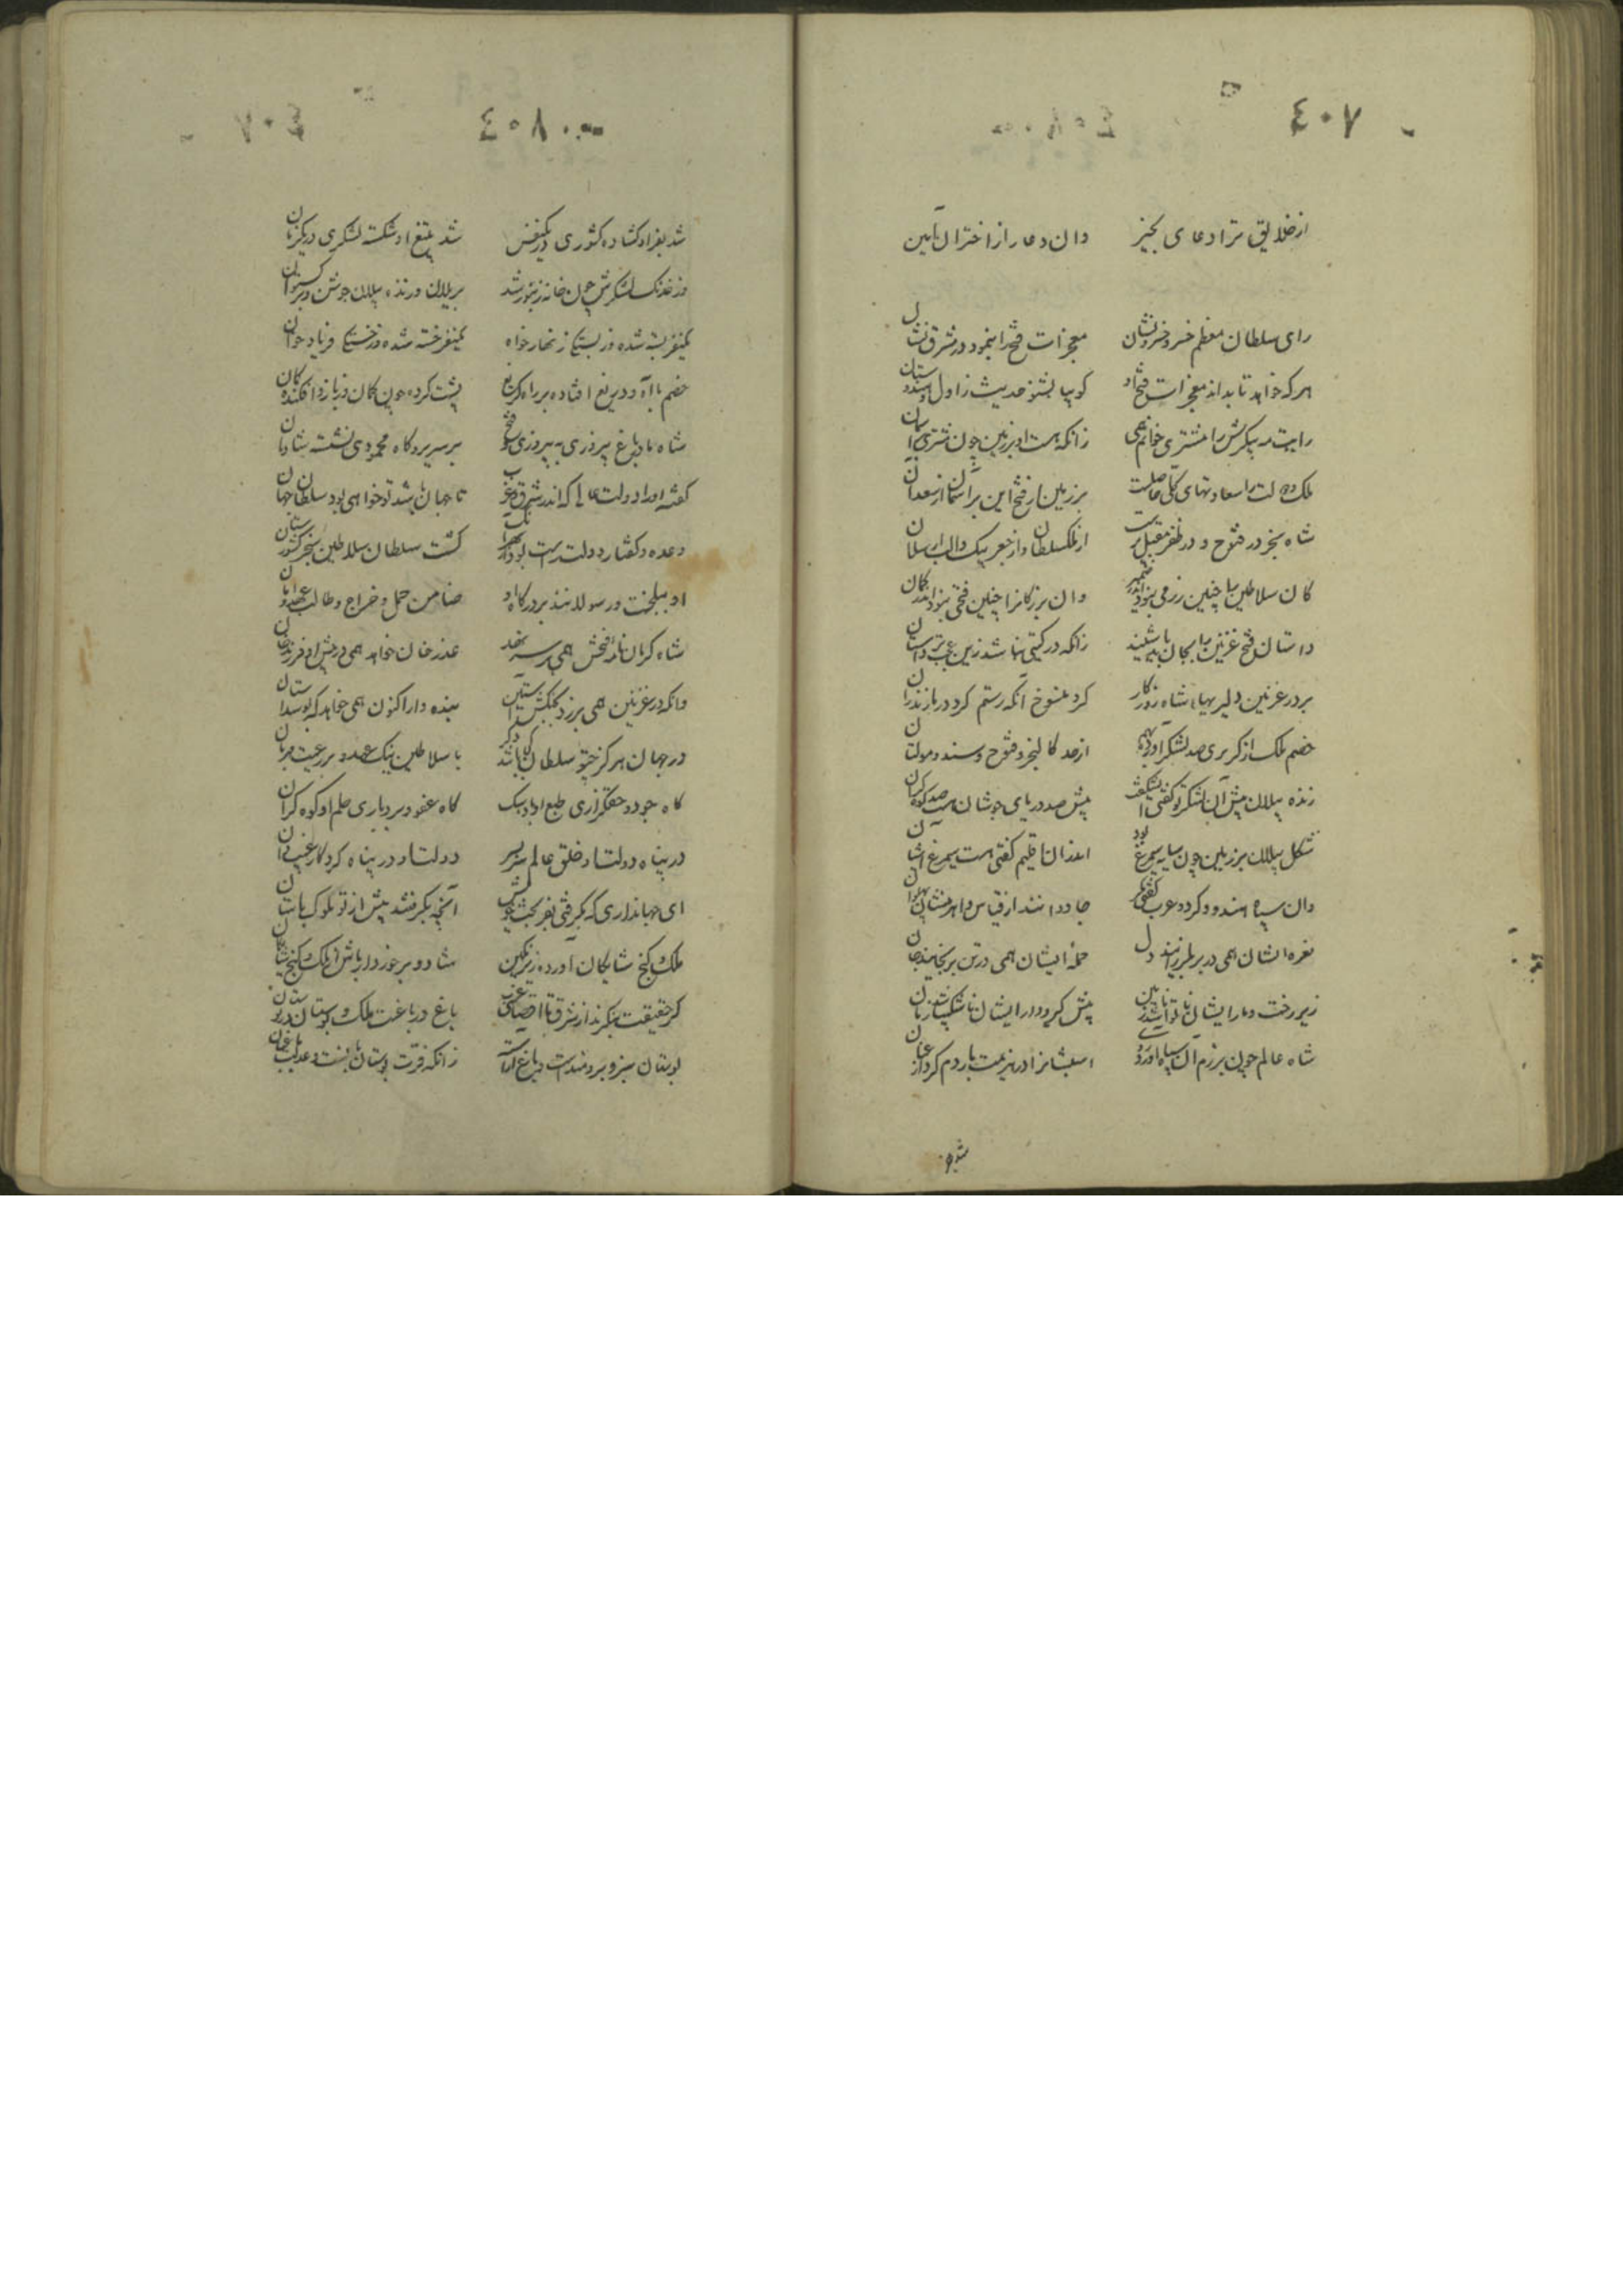 ٤٠٧
از خلایق مر ترا دعای بخیر وان دعا را از اختران آمین
رای سلطان معظم خسرو خسرونشان معجزات فتح را بنمود در مشرق نشان
هر که خواهد تا بداند معجزات فتح او کو بیا بشنو حدیث زاول و هندوستان
رایت مه پیکرش را مشتری خوانم همی زانکه هست او بر زمین چون مشتری بر آسمان
ملک و دولت را سعادتهای کلی حاصلست بر زمین از فتح این بر آسمان از سعد آن
شاه سنجر در فتوح و در ظفر مقبل ترست از ملکسلطان و از جغر بیک و الب ارسلان
کان سلاطین را چنین رزمی نبود اندر ضمیر وان بزرگانرا چنین فتحی نبود اندر گمان
داستان فتح غزنین را بجان باید شنید زانکه در گیتی نباشد زین عجب تر داستان
بر در غزنین دلیریهای شاه روزگار کرد منسوخ آنکه رستم کرد در مازندران
خصم ملک ار کربری صد لشکر آورد از صد کالنجر و قنوج و سند و مولتان
زنده پیلان پیش آن لشکر تو گفتی پیش صد دریای جوشان هست صد کوه کران
شکل پیلان بر زمین چون سایه سیمرغ بود اندران اقلیم گفتی هست سیمرغ آشیان
وان سپاه هندو و کرد و عرب گفتی مگر جادوانند از قیاس و اهرمنشان پهلوان
نعره ایشان همی در بر بلرزانید دل حمله ایشان همی در تن برنجانید جان
زیر رخت و بار ایشان ناتوان شد زمین پیش گیر و دار ایشان ناشکیبا شد زمان
شاه عالم چون برزم آن سپاه آورد روی اسبشانرا در هزیمت پاردم کرد از عنان
شد بفر
٤٠٨
شد بفر او گشاده کشوری در یکنفس شد بتیغ او شکسته لشکری در یکزمان
وز خدنگ لشکرش چون خانه زنبور شد بر یلان و زنده پیلان جوشن و برگستوان
یکنفر بسته شده وز بستگی زنهار خواه یکنفر خسته شده وز خستگی فریاد خوان
خصم با آه و دریغ افتاده بر راه گریغ پشت کرده چون کمان وز بازو افکنده کمان
شاه با دباغ پیروزی به پیروزی و فتح بر سریر و گاه محمودی نشسته شادمان
گفته او را دولت عالی که اندر شرق و غرب تا جهان باشد تو خواهی بود سلطان جهان
وعده و گفتار دولت راست بود گشت سلطان سلاطین سنجر کشورستان
شاه کرمان نامه فتحش همی عذر خان خواهد همی در پیش او فرزند خان
وانکه در غزنین همی بنده وار اکنون همی خواهد که بوسد آستان
در جهان هرگز چو سلطان کی باشد دگر با سلاطین نیک عهد و بر رعیت مهربان
گاه جود و حقگزاری طبع او باد سبک گاه عفو و بردباری حلم او کوه کران
در پناه دولت او خلق عالم سر بسر دولت او در پناه کردگار غیب دان
ای جهانداری که بگرفتی بفر بخت خویش آنچه نگرفتند پیش از تو ملوک باستان
ملک و گنج شایگان آورده زیر نگین شاد و برخوردار باش از ملک و گنج شایگان
گر حقیقت بنگرند از شرق تا اقصای غرب باغ در باغست ملک و بوستان در بوستان
بوستان سبز و برومندست و باغ آراسته زانکه فرت بوستان بانست و عدلت باغبان